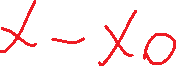 x - x0